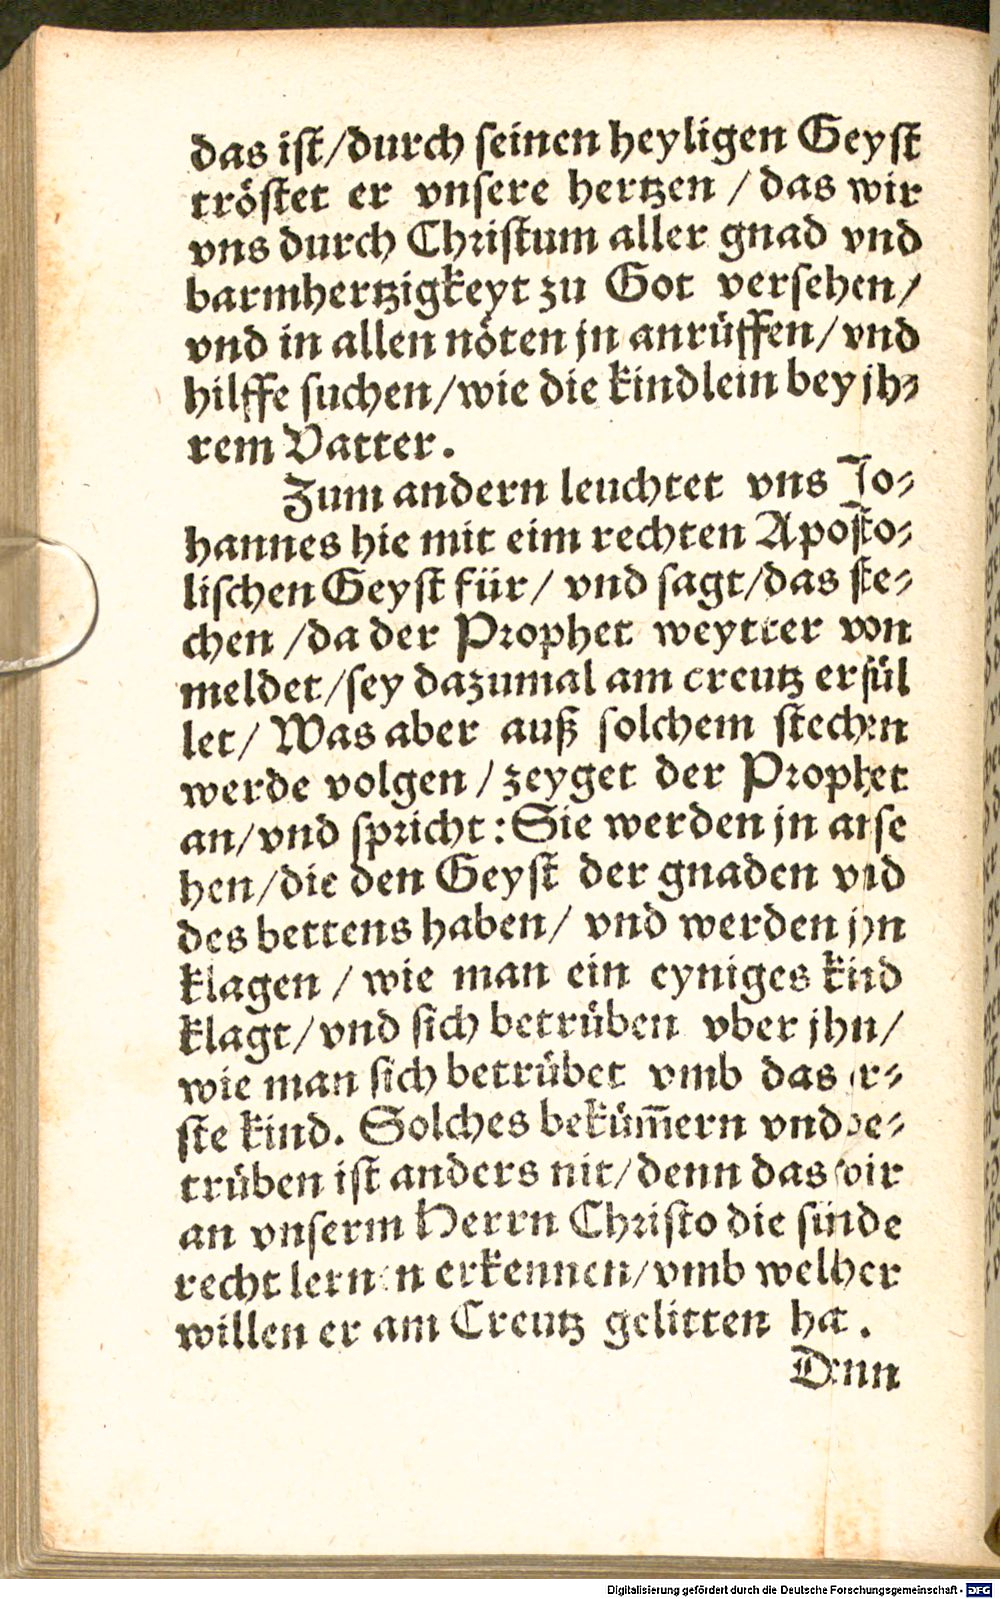 das ist/durch seinen heyligen Geyst
tröstet er vnsere hertzen / das wir
vns durch Christum aller gnad vnd
barmhertzigkeyt zu Got versehen/
vnd in allen nöten jn anrüffen/vnd
hilffe suchen/wie die kindlein bey jh⸗
rem Vatter.
Zum andern leuchtet vns Jo⸗
hannes hie mit eim rechten Aposto⸗
lischen Geyst für/ vnd sagt/das ste⸗
chen /da der Prophet weytter von
meldet/sey dazumal am creutz erfül
let/ Was aber auß solchem stechen
werde volgen / zeyget der Prophet
an/vnd spricht: Sie werden jn anse
hen/die den Geyst der gnaden vnd
des bettens haben/ vnd werden jhn
klagen / wie man ein eyniges kind
klagt/vnd sich betrüben vber jhn/
wie man sich betrübet vmb das er⸗
ste kind. Solches beküm̃ern vnd be⸗
trüben ist anders nit/denn das wir
an vnserm Herrn Christo die sünde
recht lernen erkennen/vmb welcher
willen er am Creutz gelitten hat.
Denn
Digitalisierung gefördert durch die Deutsche Forschungsgemeinschaft - DFG